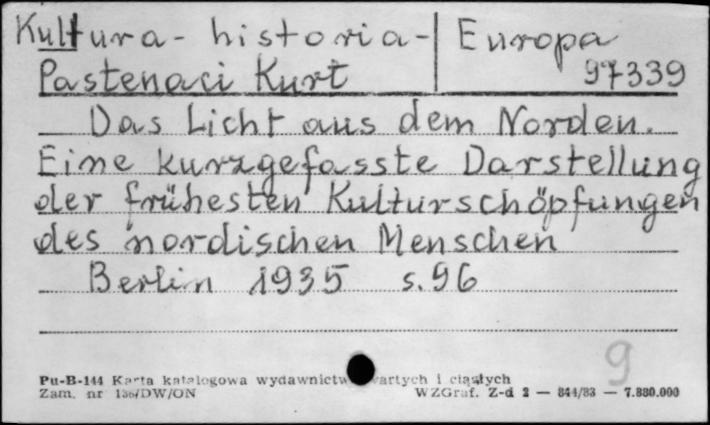 Kultura - historia - Europa
Pastenaci Kurt 97339
Das Licht aus dem Norden.
Eine kurzgefasste Darstellung
der frühesten Kulturschöpfungen
des nordischen Menschen
Berlin 1935 s. 96
9
Pu-B-144 Karta katalogowa wydawnictw zwartych i ciągłych
Zam. nr /DW/ON WZGraf. Z-d 2 — 844/83 — 7.880.000